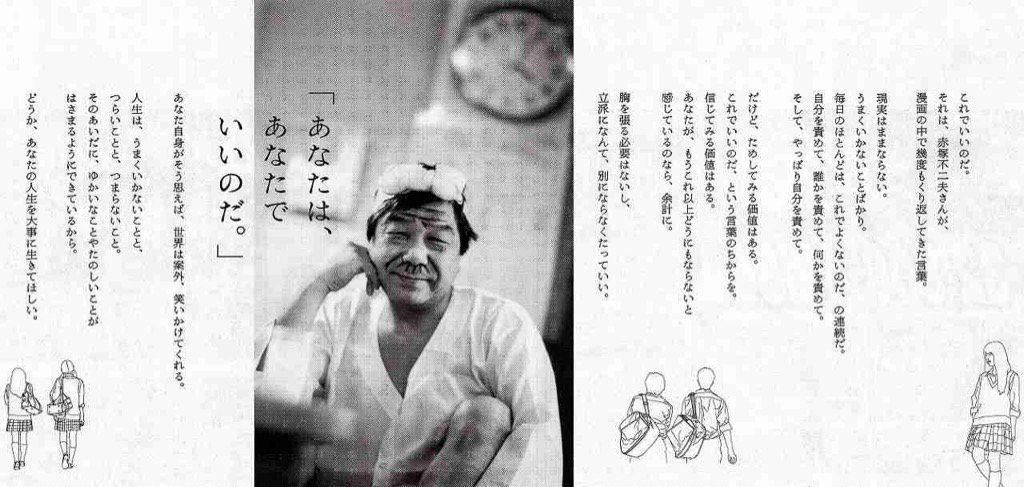 これでいいのだ。
それは、赤塚不二夫さんが、
漫画の中で幾度もくり返してきた言葉。
現実はままならない。
うまくいかないことばかり。
毎日のほとんどは、これでよくないのだ、の連続だ。
自分を責めて、誰かを責めて、何かを責めて。
そして、やっぱり自分を責めて。
だけど、ためしてみる価値はある。
これでいいのだ、という言葉のちからを。
信じてみる価値はある。
あなたが、もうこれ以上どうにもならないと
感じているのなら、余計に。
胸を張る必要はないし、
立派になんて、別にならなくたっていい。
「あなたは、
あなたで
いいのだ。」
あなた自身がそう思えば、世界は案外、笑いかけてくれる。
人生は、うまくいかないことと、
つらいことと、つまらないこと。
そのあいだに、ゆかいなことやたのしいことが
はさまるようにできているから。
どうか、あなたの人生を大事に生きてほしい。